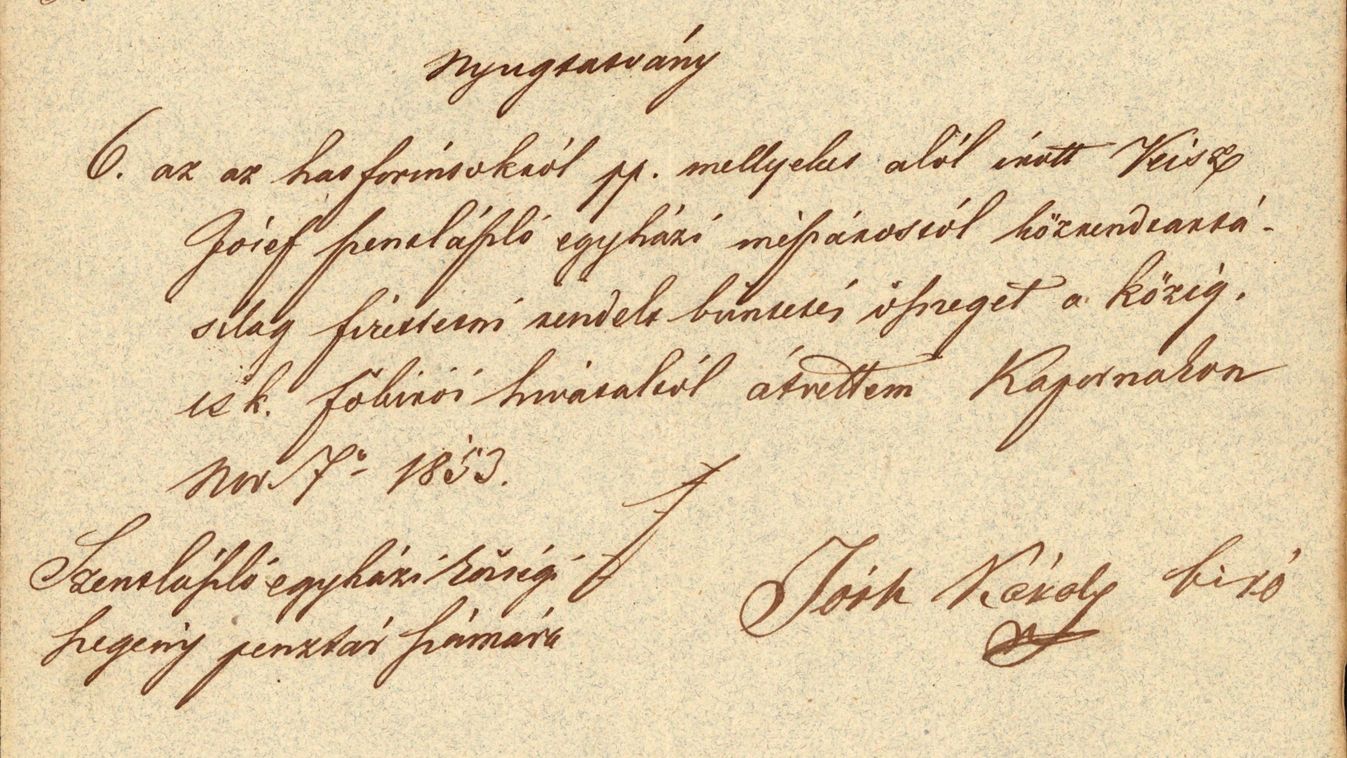 Nyugtatvány
6. az az hat forintokról pp. mellyeket alól írott Veisz
József szentlászló egyházi mészárostól közrendtartá-
silag fizettetni rendelt büntetés összeget a közig.
is k. főbírói hivataltól átvettem Kapornakon
Nov 7én 1853.
Szentlászló egyházi községi
szegény penztár számára
Tóth Károly biró